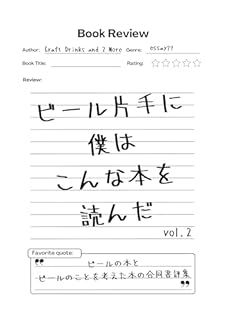 Book Review
Author: Craft Drinks and 2 More Genre: essay??
Book Title: Rating: ☆☆☆☆☆
Review:
ビール片手に
僕は
こんな本を
読んだ
vol.2
Favorite quote:
ビールの本と
ビールのことを考えた本の合同書評集